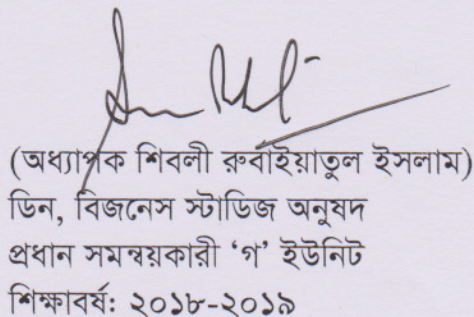 (অধ্যাপক শিবলী রুবাইয়াতুল ইসলাম)
ডিন, বিজনেস স্টাডিজ অনুষদ
প্রধান সমন্বয়কারী ‘গ’ ইউনিট
শিক্ষাবর্ষ: ২০১৮-২০১৯